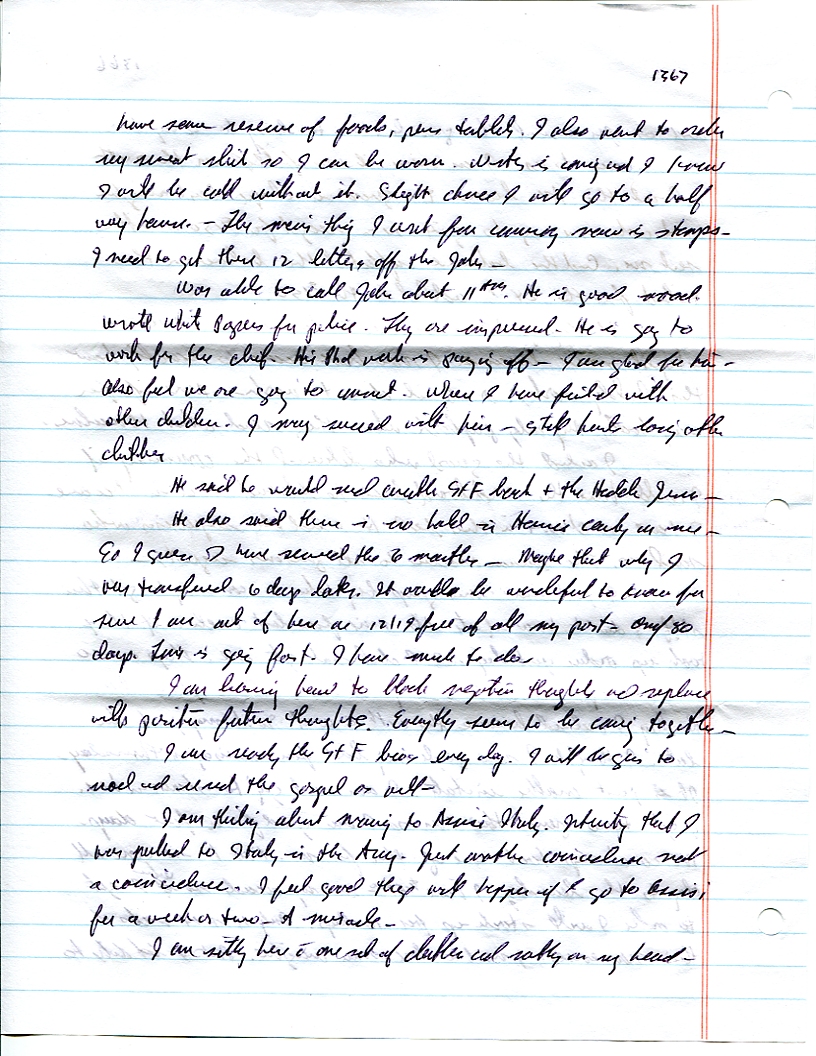 1367
have some reserve of foods, pens tablets. I also want to order
my sweat shirt so I can be warm. Winter is coming and I know
I will be cold without it. Slight chance I will go to a half
way house. – The main thing I want from commissary now is stamps –
I need to get these 12 letters off the John –
Was able to call John about 11 AM. He is good mood.
wrote white papers for police. They are impressed. He is going to
work for the chief. His Phd work is paying off – I am glad for him –
also feel we are going to connect. Where I have failed with
other children. I may succeed with him – still hurts losing other
children
He said he would send another St F book + the
He also said there is no hold in Harris county on me –
So I guess I have served the 6 months – Maybe that why I
was transferred 6 days later. It would be wonderful to know for
sure I am out of here on 12/19 free of all my past – only 80
days. Time is going fast. I have much to do.
I am learning how to block negative thoughts and replace
with positive future thoughts. Everything seems to be coming together –
I am reading the St F book every day. I will begin to
read and reread the gospel as well –
I am thinking about moving to Assisi Italy. Interesting that I
was pulled to Italy in the Army. Just another coincidence not
a coincidence. I feel good things will happen if I go to Assisi
for a week or two – A miracle –
I am sitting here c̄ one set of clothes and on my head –